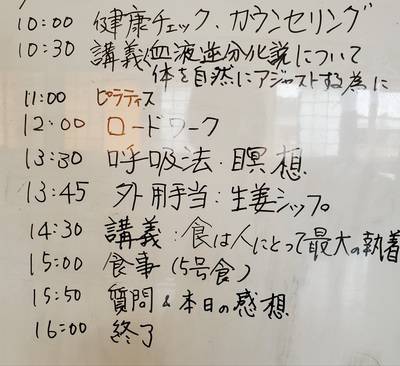 10:00 健康チェック、カウンセリング
10:30 講義<血液逆分化説について
体を自然にアジャストする為に
11:00 ピラティス
12:00 ロードワーク
13:30 呼吸法・瞑想
13:45 外用手当:生姜シップ。
14:30 講義:食は人にとって最大の執着
15:00 食事(5号食)
15:50 質問&本日の感想
16:00 終了